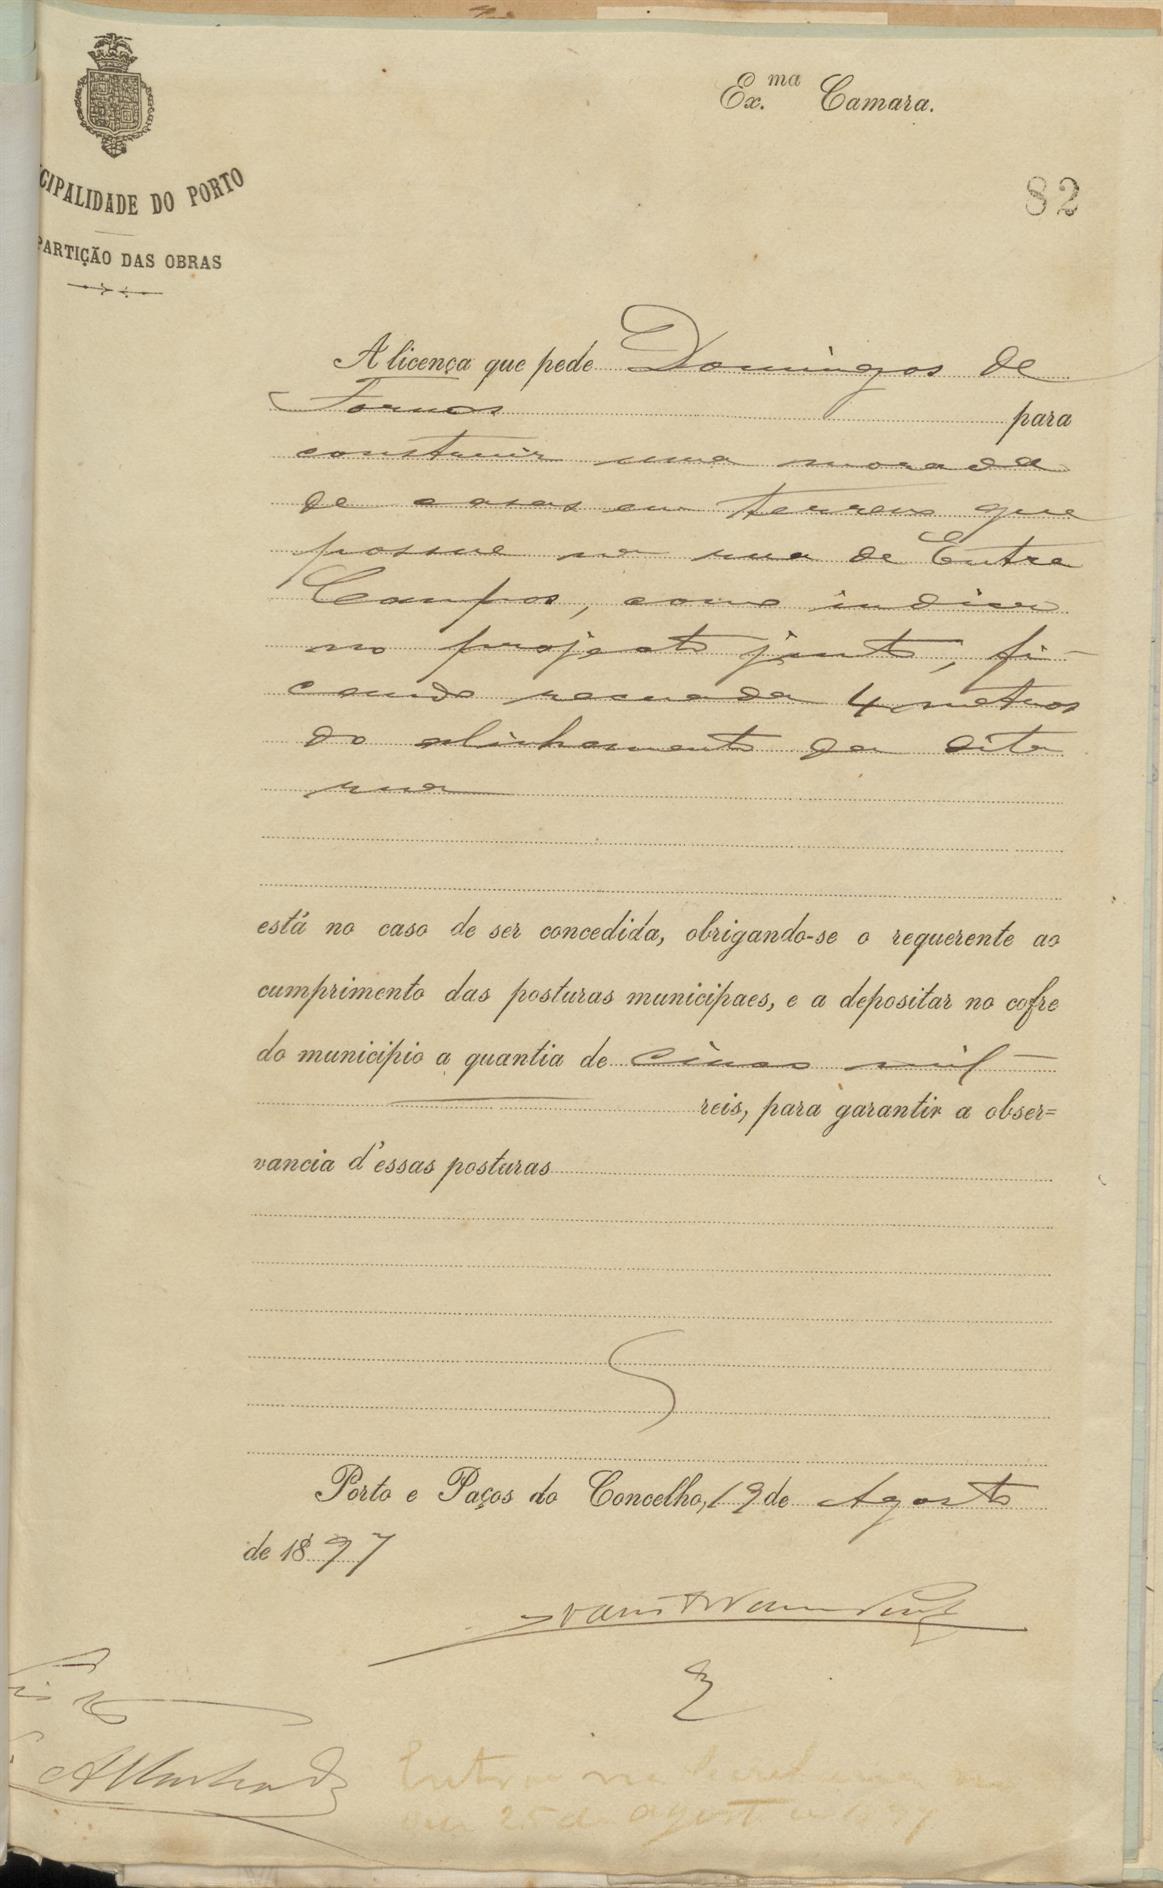 Ex.ma Camara.
CIPALIDADE DO PORTO
PARTIÇÃO DAS OBRAS
82
A licença que pede Domingos de
Fornos para
construir uma morada
de casas em terreno que
possue na rua de Entre
Campos, como indica
no projecto junto, fi-
cando recuada 4 metros
do alinhamento da dita
rua
está no caso de ser concedida, obrigando-se o requerente ao
cumprimento das posturas municipaes, e a depositar no cofre
do municipio a quantia de cinco mil
reis, para garantir a obser=
vancia d'essas posturas
Porto e Paços do Concelho, 19 de Agosto
de 1897
A Machado
Entrou na
em 25 de agosto de 1897